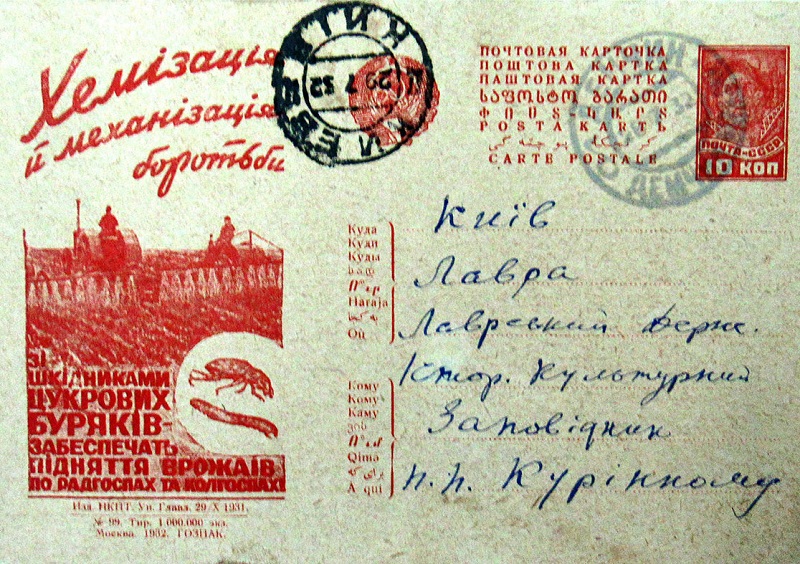 Хемізація
й механізація
боротьби
ЗІ
ШКІДНИКАМИ
ЦУКРОВИХ
БУРЯКІВ-
ЗАБЕСПЕЧАТЬ
ПІДНЯТТЯ ВРОЖАЇВ
ПО РАДГОСПАХ ТА КОЛГОСПАХ!
Изд. НКПТ. Уп. Главл. 29/X 1931.
№ 99. Тир. 1.000.000 экз.
Москва. 1932. ГОЗНАК.
КИЕВ
29 7 32
ПОЧТОВАЯ КАРТОЧКА
ПОШТОВА КАРТКА
ПАШТОВАЯ КАРТКА
ՓՈՍՏ-ՔԱՐՏ
POSTA KARTЬ
CARTE POSTALE
ПОЧТА-СССР
10 КОП
Куда
Куди
Куды
Haraja
Où
Кому
Кому
Каму
Qimə
A qui
Київ
Лавра
Лаврський Держ.
Істор. Культурний
Заповідник
П. П. Курінному